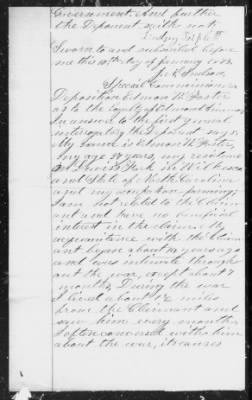 Government. And further
the Deponent saith not.
Sworn to and subscribed before
me this 10th day of January
Special Commissioner
Deposition
as to the loyalty of
In answer to the first general
interrogatory the Deponent says
My name is
my age years, my residence
at Lewis Fork in Wilkes Co
and State of North Carolina
and my occupation farming;
I am not related to the Claim
ant and have no beneficial
interest in the claim. My
acquaintance with the Claim
ant began about years ago
and was intimate through
out the war, except about 7
months. During the war
I lived about 1½ miles
from the Claimant and
saw him every month
I often conversed with him
about the war, its causes